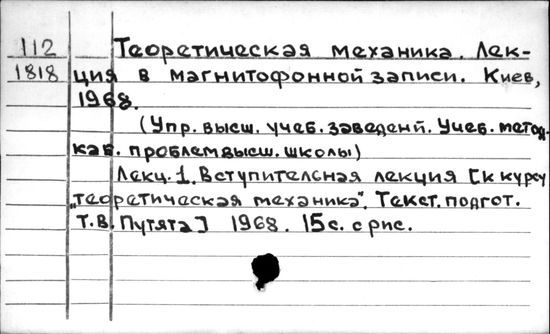 112 Теоретическая механика. Лек-
1818 ция в магнитофонной записи. Киев,
1968.
(Упр. высш. учеб. заведений. Учеб. метод.
каб. проблем высш. школы)
Лекц. 1. Вступительная лекция [к курсу
"теоретическая механика". Текст. подгот.
Т.В. Путята] 1968. 15 с. с рис.